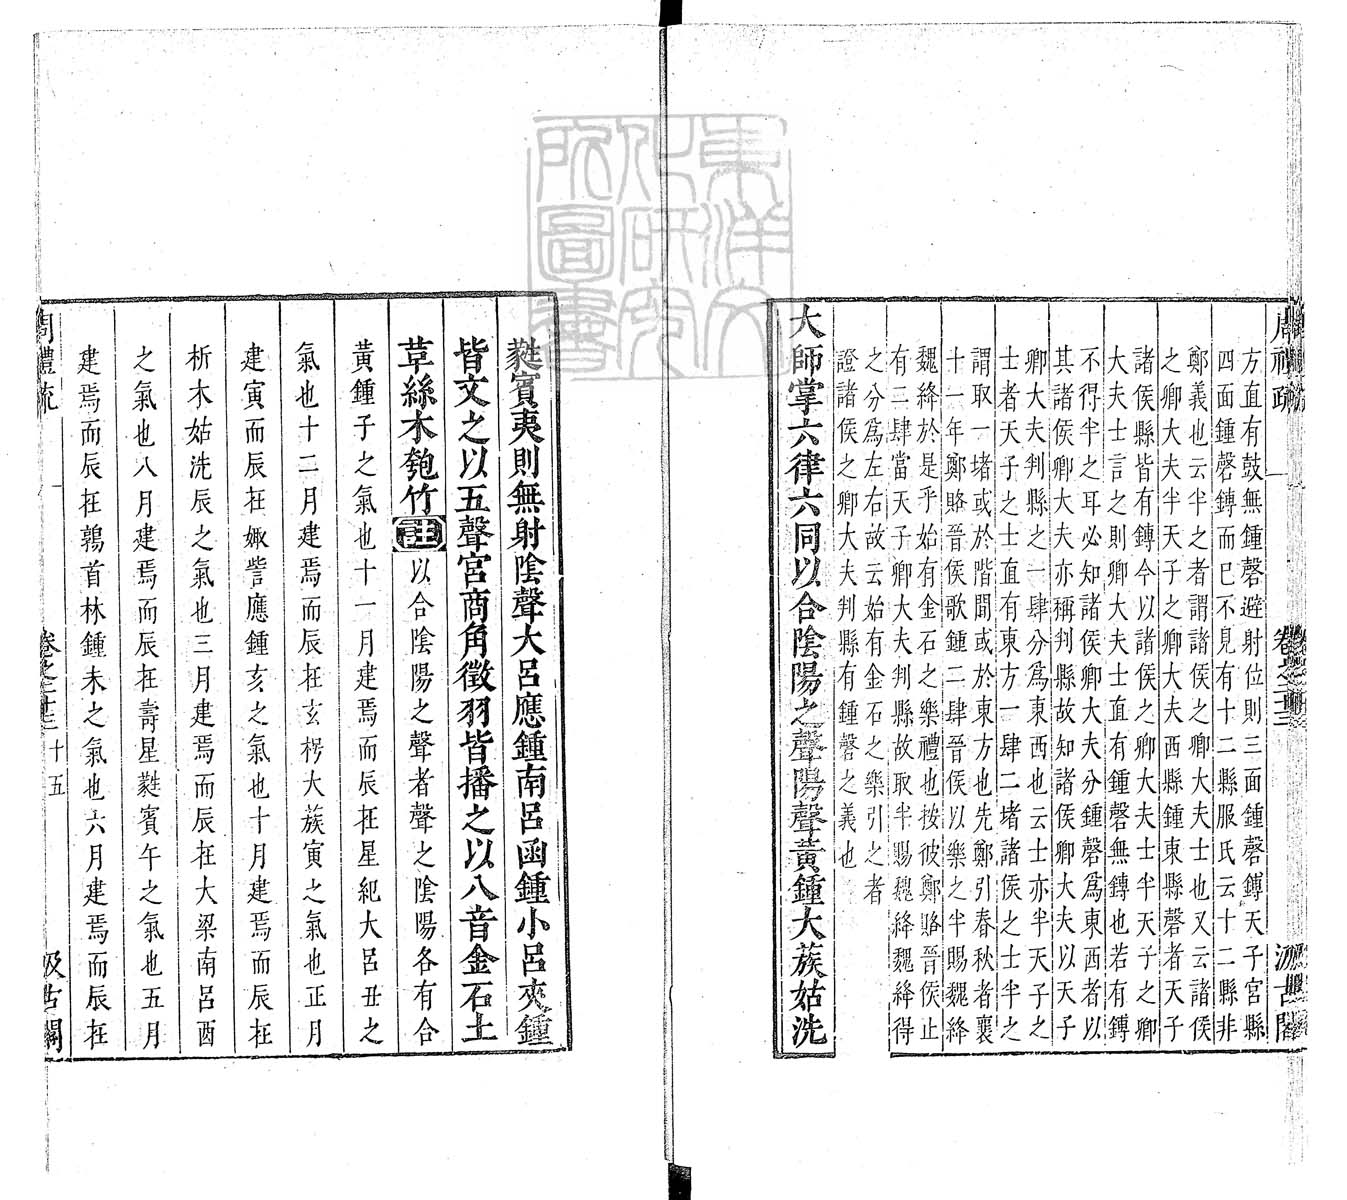 周禮疏
卷之二十三
汲古閣
方直有鼓無鍾磬避射位則三面鍾磬鎛天子宮縣
四面鍾磬鎛而巳不見有十二縣服氏云十二縣非
鄭義也云半之者謂諸侯之卿大夫士也又云諸侯
之卿大夫半天子之卿大夫西縣鍾東縣磬者天子
諸侯縣皆有鎛今以諸侯之卿大夫士半天子之卿
大夫士言之則卿大夫士直有鍾磬無鎛也若有鎛
不得半之耳必知諸侯卿大夫分鍾磬爲東西者以
其諸侯卿大夫亦稱判縣故知諸侯卿大夫以天子
卿大夫判縣之一肆分爲東西也云士亦半天子之
士者天子之士直有東方一肆二堵諸侯之士半之
謂取一堵或於階間或於東方也先鄭引春秋者襄
十一年鄭賂晉侯歌鍾二肆晉侯以樂之半賜魏絳
魏絳於是乎始有金石之樂禮也按彼鄭賂晉侯止
有二肆當天子卿大夫判縣故取半賜魏絳魏絳得
之分爲左右故云始有金石之樂引之者
證諸侯之卿大夫判縣有鍾磬之義也
大師掌六律六同以合陰陽之聲陽聲黃鍾大蔟姑洗
蕤賓夷則無射陰聲大呂應鍾南呂函鍾小呂夾鍾
皆文之以五聲宮商角徵羽皆播之以八音金石土
革絲木匏竹註以合陰陽之聲者聲之陰陽各有合
黃鍾子之氣也十一月建焉而辰在星紀大呂丑之
氣也十二月建焉而辰在玄枵大蔟寅之氣也正月
建寅而辰在娵訾應鍾亥之氣也十月建焉而辰在
析木姑洗辰之氣也三月建焉而辰在大梁南呂酉
之氣也八月建焉而辰在壽星蕤賓午之氣也五月
建焉而辰在鶉首林鍾未之氣也六月建焉而辰在
周禮疏
卷之二十三
十五
汲古閣
東洋文化研究所圖書